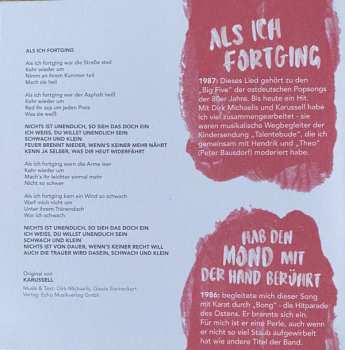 ALS ICH FORTGING
Als ich fortging war die Straße steil
Kehr wieder um
Nimm an ihrem Kummer teil
Mach sie heil
Als ich fortging war der Asphalt heiß
Kehr wieder um
Red ihr aus um jeden Preis
Was sie weiß
NICHTS IST UNENDLICH, SO SIEH DAS DOCH EIN
ICH WEISS, DU WILLST UNENDLICH SEIN
SCHWACH UND KLEIN
FEUER BRENNT NIEDER, WENN'S KEINER MEHR NÄHRT
KENN JA SELBER, WAS DIR HEUT WIDERFÄHRT
Als ich fortging warn die Arme leer
Kehr wieder um
Mach's ihr leichter einmal mehr
Nicht so schwer
Als ich fortging kam ein Wind so schwach
Warf mich nicht um
Unter ihrem Tränendach
War ich schwach
NICHTS IST UNENDLICH, SO SIEH DAS DOCH EIN
ICH WEISS, DU WILLST UNENDLICH SEIN
SCHWACH UND KLEIN
NICHTS IST VON DAUER, WENN'S KEINER RECHT WILL
AUCH DIE TRAUER WIRD DASEIN, SCHWACH UND KLEIN
Original von
KARUSSELL
Musik & Text: Dirk Michaelis, Gisela Steineckert
Verlag: Echo Musikverlag GmbH
ALS ICH
FORTGING
1987: Dieses Lied gehört zu den
„Big Five" der ostdeutschen Popsongs
der 80er Jahre. Bis heute ein Hit.
Mit Dirk Michaelis und Karussell habe
ich viel zusammengearbeitet - sie
waren musikalische Wegbegleiter der
Kindersendung „Talentebude", die ich
gemeinsam mit Hendrik und „Theo"
(Peter Bausdorf) moderiert habe.
HAB DEN
MOND MIT
DER HAND BERÜHRT
1986: begleitete mich dieser Song
mit Karat durch „Bong" - die Hitparade
des Ostens. Er brannte sich ein.
Für mich ist er eine Perle, auch wenn
er nicht so viel Staub aufgewirbelt
hat wie andere Titel der Band.